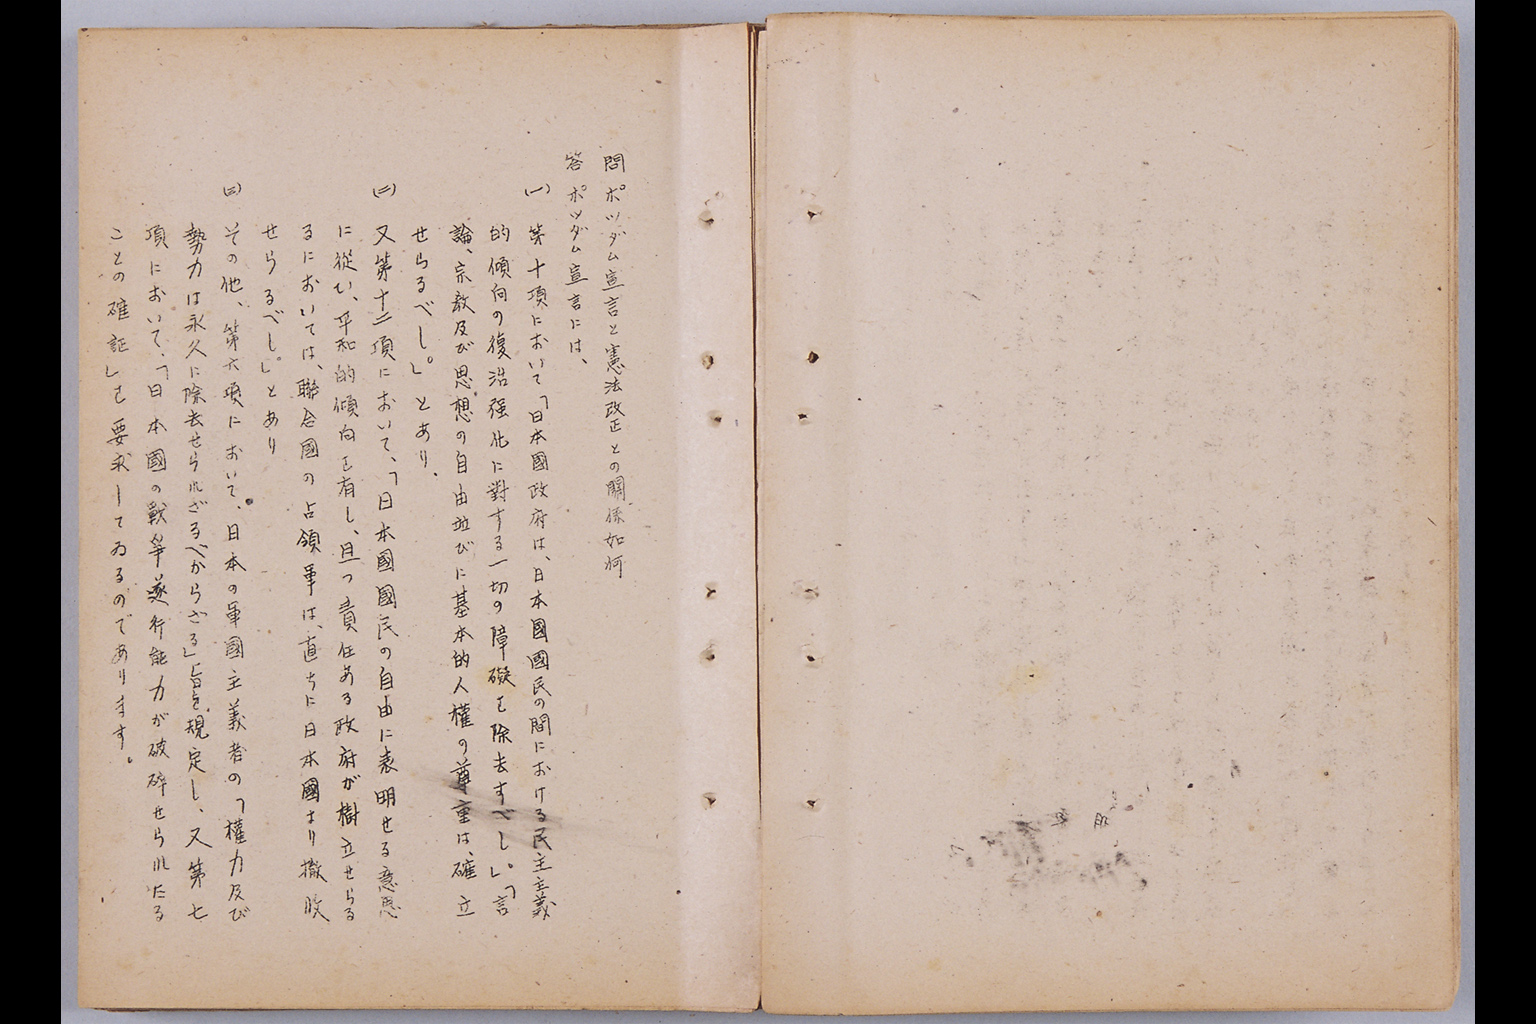 問 ポツダム宣言と憲法改正との關係如何
答 ポツダム宣言には、
(一) 第十項において「日本國政府は、日本國國民の間における民主主義
的傾向の復活強化に對する一切の障礙を除去すべし。」「言
論、宗教及び思想の自由竝びに基本的人權の尊重は、確立
せらるべし。」とあり、
(二) 又第十二項において、「日本國國民の自由に表明せる意思
に從ひ、平和的傾向を有し、且つ責任ある政府が樹立せらる
るにおいては、聯合國の占領軍は、直ちに日本國より撤收
せらるべし。」とあり
(三) その他、第六項において、日本の軍國主義者の「權力及び
勢力は永久に除去せられざるべからざる」旨を規定し、又第七
項において、「日本國の戰爭遂行能力が破碎せられたる
ことの確証」を要求してゐるのであります。